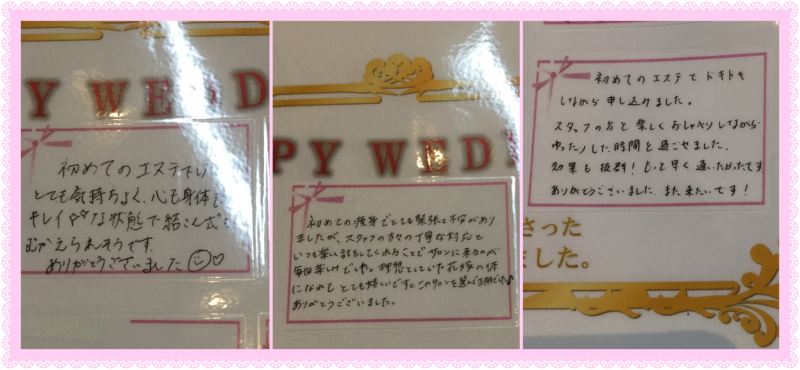 PY WEDD
初めてのエステでしたが
とても気持ちよく、心も身体も
キレイな状態で結こん式を
むかえられそうです。
ありがとうございました
PY WEDD
初めての痩身でとても緊張と不安があり
ましたが、スタッフの方々の丁寧な対応と
いつも楽しく話をしてくれることでサロンに来るのが
毎回楽しみでした。理想としていた花嫁の体
になれて とても嬉しいです。このサロンを選んで正解でした♪
ありがとうございました。
初めてのエステで ドキドキ
しながら 申し込みました。
スタッフの方と 楽しく おしゃべりしながら
ゆったりした時間を過ごせました。
効果も 抜群! もっと早く 通いたかったです
ありがとうございました。また来たいです!
さった
ました。